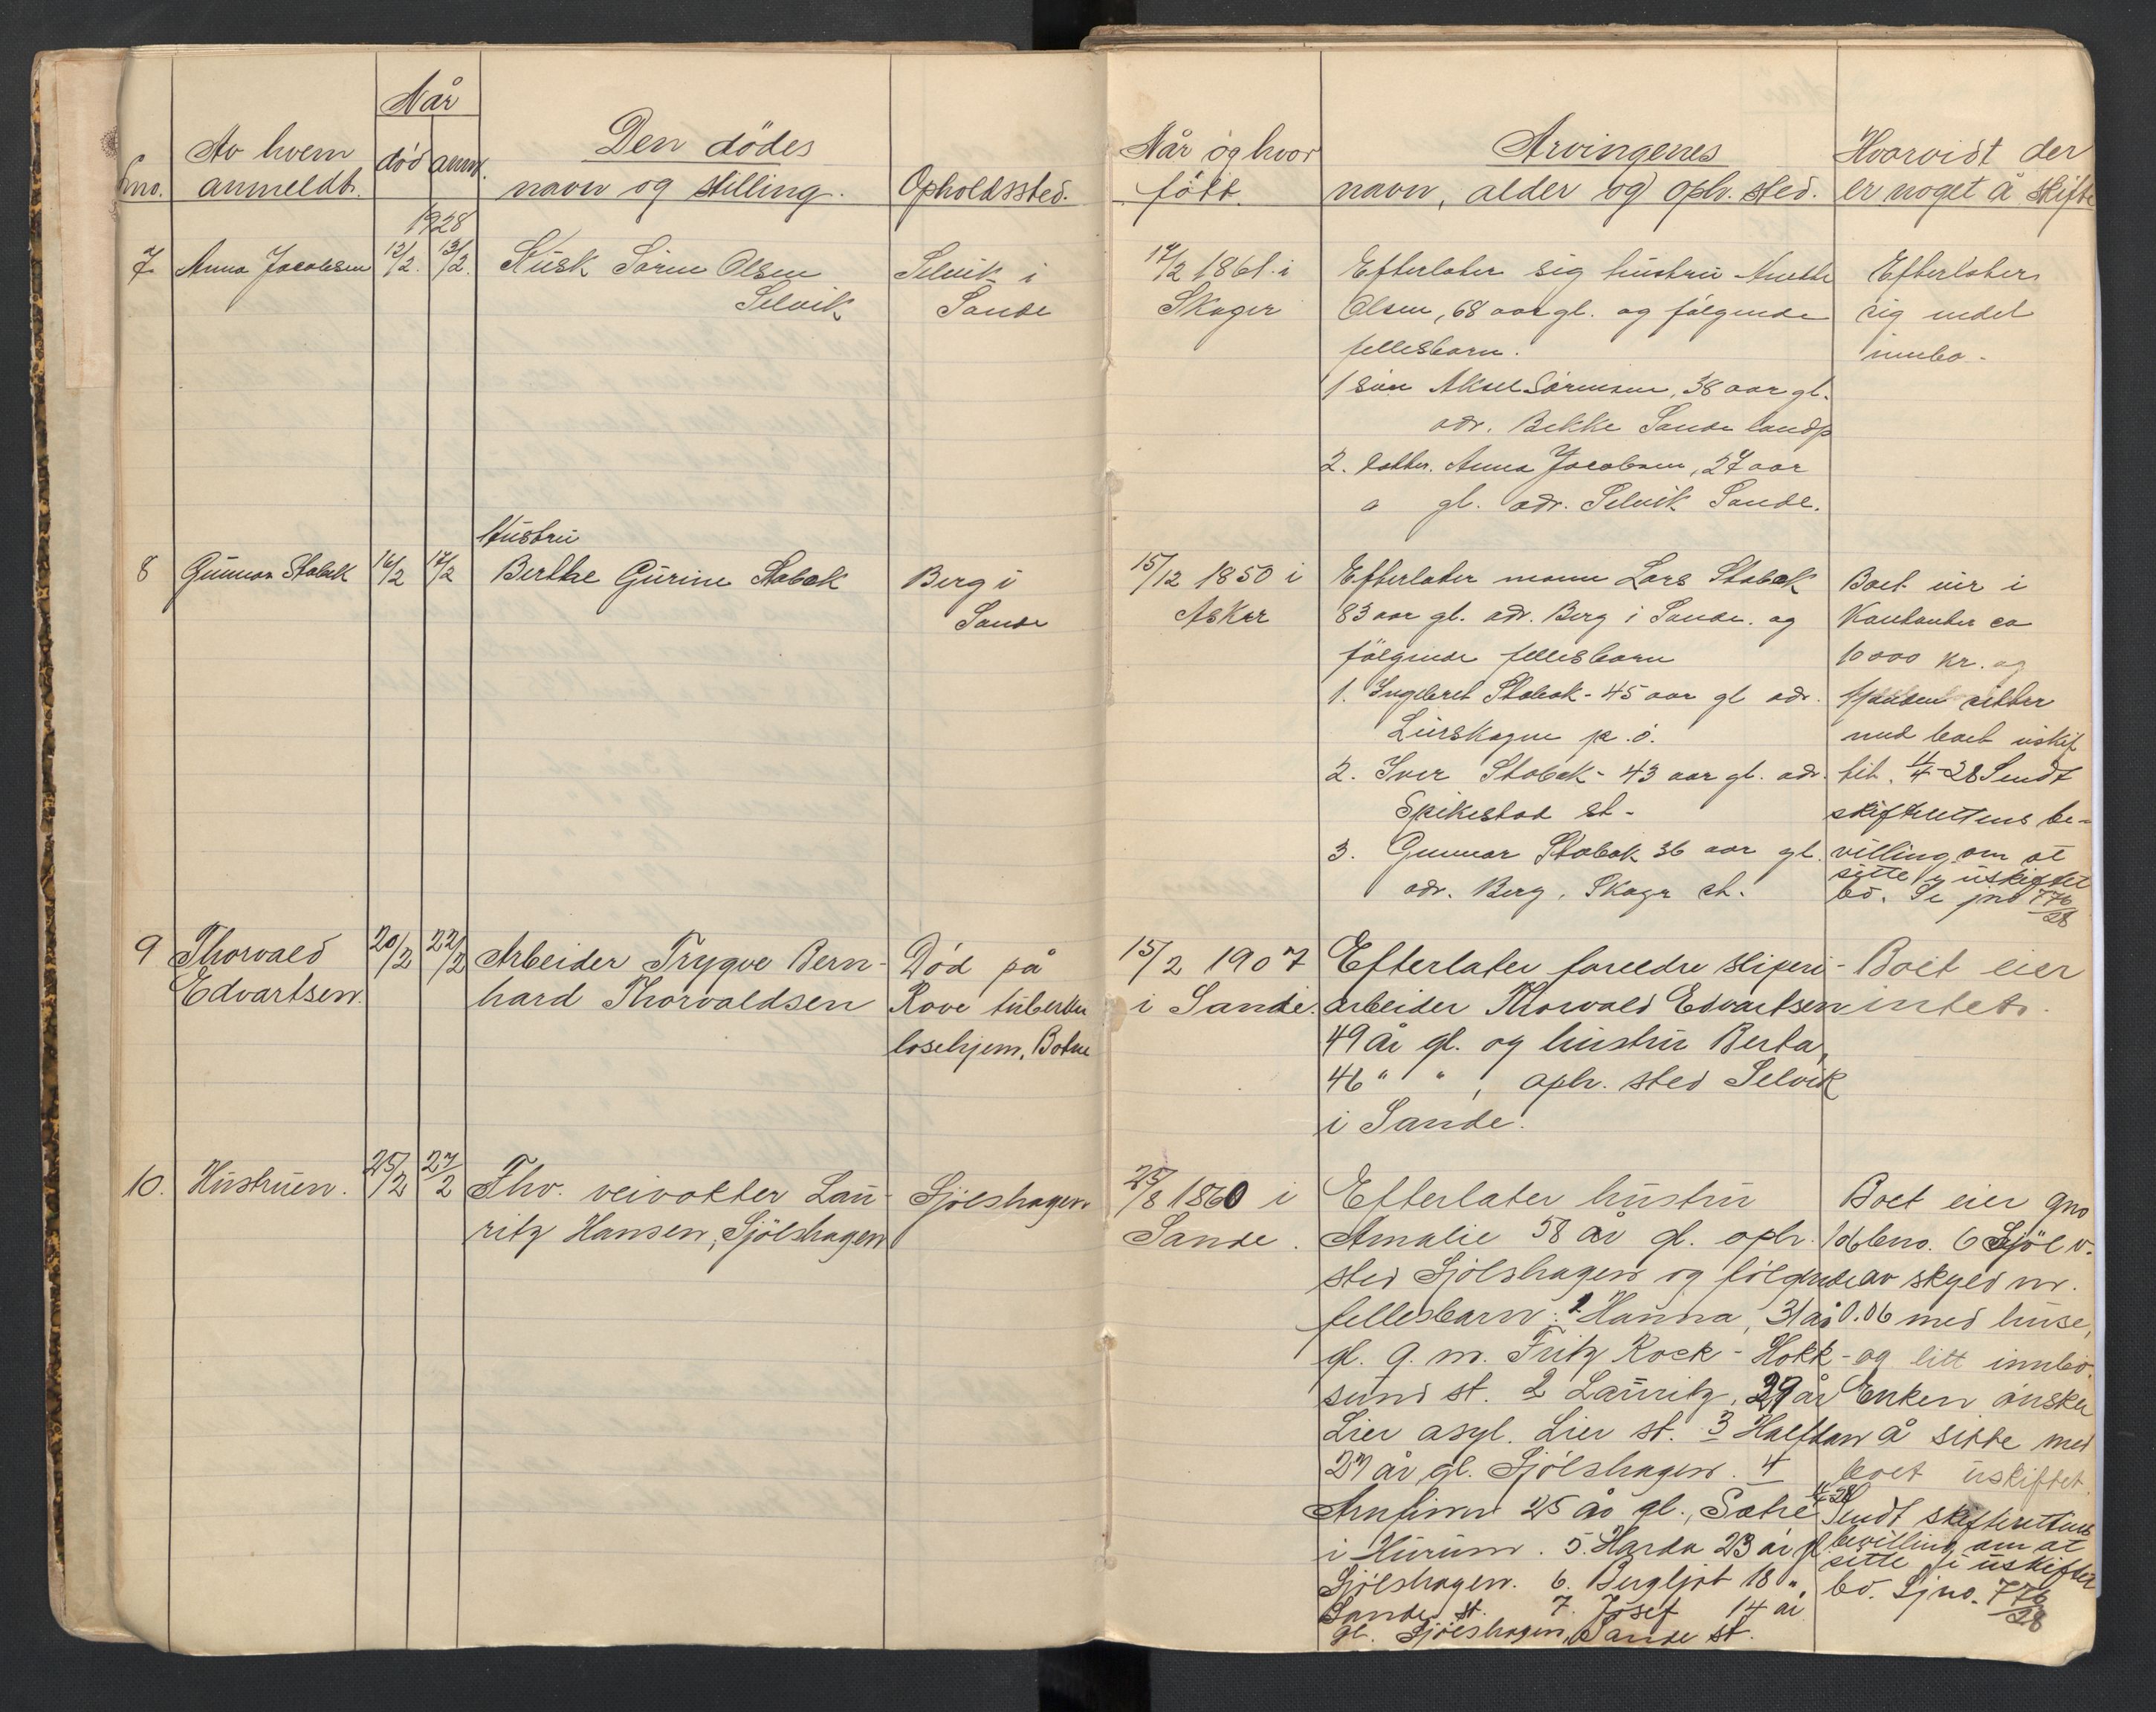 Når
Av hvem
Den dødes
Lno. anmeldt. død anm. navn og stilling. Opholdssted.
Når og hvor
født.
Arvingenes
navn, alder og oph. sted.
Hvorvidt der
er noget å skifte
1928
7 Anna Jacobsen 12/2. 13/2. Kusk Sören Olsen
Selvik
Selvik i
Sande
14/2 1861 i
Skoger
Efterlater sig hustru Anette
Olsen, 68 aar gl. og fölgende
fellesbarn.
1 sön Aksel Sörensen, 38 aar gl.
adr. Bekke Sande landp
2. datter. Anna Jacobsen, 27 aar
gl. adr. Selvik Sande.
Efterlater
sig endel
innbo.
8 Gunnar Stabæk 16/2 17/2 Hustru
Berthe Gurine Stabæk
Berg i
Sande
15/12 1850 i
Asker
Efterlater mann Lars Stabæk
83 aar gl. adr. Berg i Sande. og
fölgende fellesbarn
1. Ingebret Stabæk - 45 aar gl adr.
Lierskogen p.ö.
2. Iver Stabæk - 43 aar gl. adr.
Spikestad st.
3. Gunnar Stabæk 36 aar gl.
adr. Berg, Skoger st.
Boet eier i
Kontanter ca
10 000 kr. og
Mannen sitter
med boet uskif
tet. 11/4-28 Sendt
skifterettens be-
villing om at
sitte i uskiftet
bo. Se jno 776/28
9 Thorvald
Edvartsen.
20/2 22/2 Arbeider Trygve Bern-
hard Thorvaldsen
Död på
Rove tuberku
losehjem, Botne
15/2 1907
i Sande.
Efterlater foreldre sliperi-
arbeider Thorvald Edvartsen
49 år gl. og hustru Berta,
46 " " , oph. sted Selvik
i Sande.
Boet eier
intet.
10. Hustruen. 25/2 27/2 Fhv. veivokter Lau-
ritz Hansen, Sjölshagen
Sjölshagen
25/8 1860 i
Sande.
Efterlater hustru
Amalie 58 år gl. oph.
sted Sjölshagen og fölgende
fellesbarn: 1. Hanna, 31 år
gl. g. m. Fritz Rock - Hokk-
sund st. 2 Lauritz, 29 år
Lier asyl. Lier st. 3 Halfdan
27 år gl. Sjölshagen. 4
Arnfinn 25 år gl., Sætre
i Hurum. 5. Harda 23 år gl.
Sjölshagen. 6. Bergljot 18 "
Sande st. 7. Josef 14 år
gl. Sjölshagen, Sande st.
Boet eier gno
106 bno. 6 Sjöl v.
av skyld mr.
0.06 med huse,
og litt innbo.
Enken önsker
å sitte med
boet uskiftet.
Sendt skifterettens
bevilling om at
sitte i uskiftet
bo. Sjno. 776/28